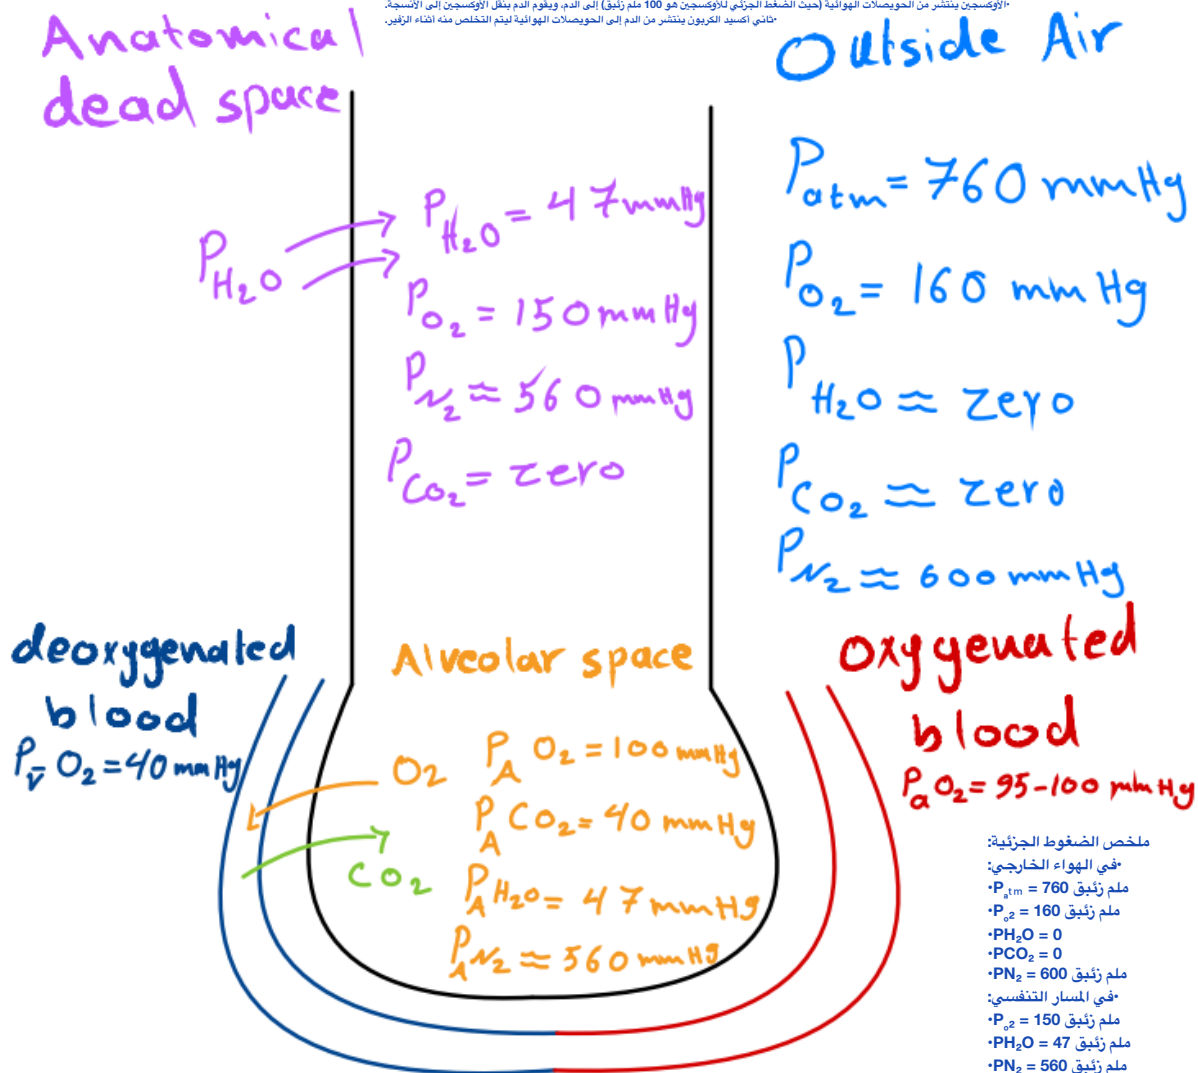 •الأوكسجين ينتشر من الحويصلات الهوائية (حيث الضغط الجزئي للأوكسجين هو 100 ملم زئبق) إلى الدم، ويقوم الدم بنقل الأوكسجين إلى الأنسجة.
•ثاني أكسيد الكربون ينتشر من الدم إلى الحويصلات الهوائية ليتم التخلص منه أثناء الزفير.
Anatomical
dead space
Outside Air
P atm = 760 mmHg
P O₂ = 160 mmHg
P H₂O ≈ zero
P CO₂ ≈ zero
P N₂ ≈ 600 mmHg
P H₂O
P H₂O = 47 mmHg
P O₂ = 150 mmHg
P N₂ ≈ 560 mmHg
P CO₂ = zero
deoxygenated
blood
P v̄ O₂ = 40 mmHg
Alveolar space
O₂
CO₂
P A O₂ = 100 mmHg
P A CO₂ = 40 mmHg
P A H₂O = 47 mmHg
P A N₂ ≈ 560 mmHg
oxygenated
blood
P a O₂ = 95-100 mmHg
ملخص الضغوط الجزئية:
•في الهواء الخارجي:
•Pₐₜₘ = 760 ملم زئبق
•Pₒ₂ = 160 ملم زئبق
•PH₂O = 0
•PCO₂ = 0
•PN₂ = 600 ملم زئبق
•في المسار التنفسي:
•Pₒ₂ = 150 ملم زئبق
•PH₂O = 47 ملم زئبق
•PN₂ = 560 ملم زئبق